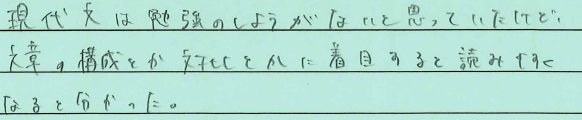 現代文は勉強のしようがないと思っていたけど、
文章の構成とか対比とかに着目すると読みやすく
なると分かった。